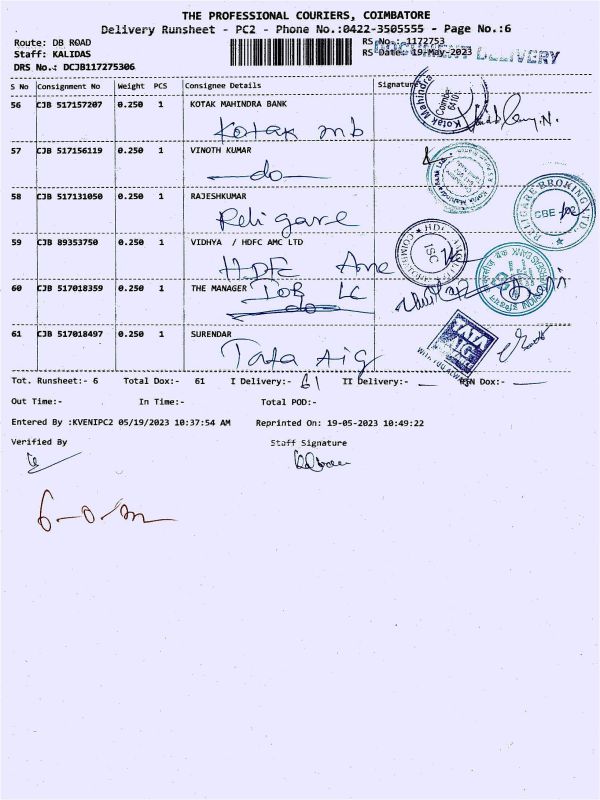 THE PROFESSIONAL COURIERS, COIMBATORE
Delivery Runsheet - PC2 - Phone No.:0422-3505555 - Page No.:6
Route: DB ROAD
RS No.: 1172753
Staff: KALIDAS
RS Date: 19-May-2023
DOCUMENT DELIVERY
DRS No.: DCJB117275306
S No Consignment No Weight PCS Consignee Details Signature
56 CJB 517157207 0.250 1 KOTAK MAHINDRA BANK
Kotak mb
Kotak Mahindra
57 CJB 517156119 0.250 1 VINOTH KUMAR
do
58 CJB 517131050 0.250 1 RAJESHKUMAR
Religare
RELIGARE BROKING LTD.
CBE
59 CJB 89353750 0.250 1 VIDHYA / HDFC AMC LTD
HDFC Amc
ISC
60 CJB 517018359 0.250 1 THE MANAGER IOB LC
do
61 CJB 517018497 0.250 1 SURENDAR
Tata Aig
TATA
AIG
WITH YOU ALWAYS
Tot. Runsheet:- 6 Total Dox:- 61 I Delivery:- 61 II Delivery:- Dox:-
Out Time:- In Time:- Total POD:-
Entered By :KVENIPC2 05/19/2023 10:37:54 AM Reprinted On: 19-05-2023 10:49:22
Verified By Staff Signature